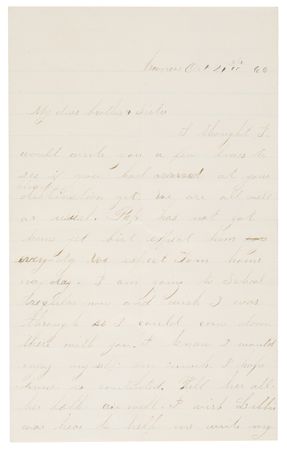 Oct 21st 60
My dear brother & sister
I thought I
would write you a few lines to
see if you had arrived at your
destination yet. We are all well
as usual. Pop has not got
home yet but expect him
every day We expect Tom home
day. I am going to School
now and wish I was
through so I could come down
there with you. I know I would
enjoy my self so much. I hope
is contented. Tell her all
her folks are well. I wish Libbie
was hear to help me write my